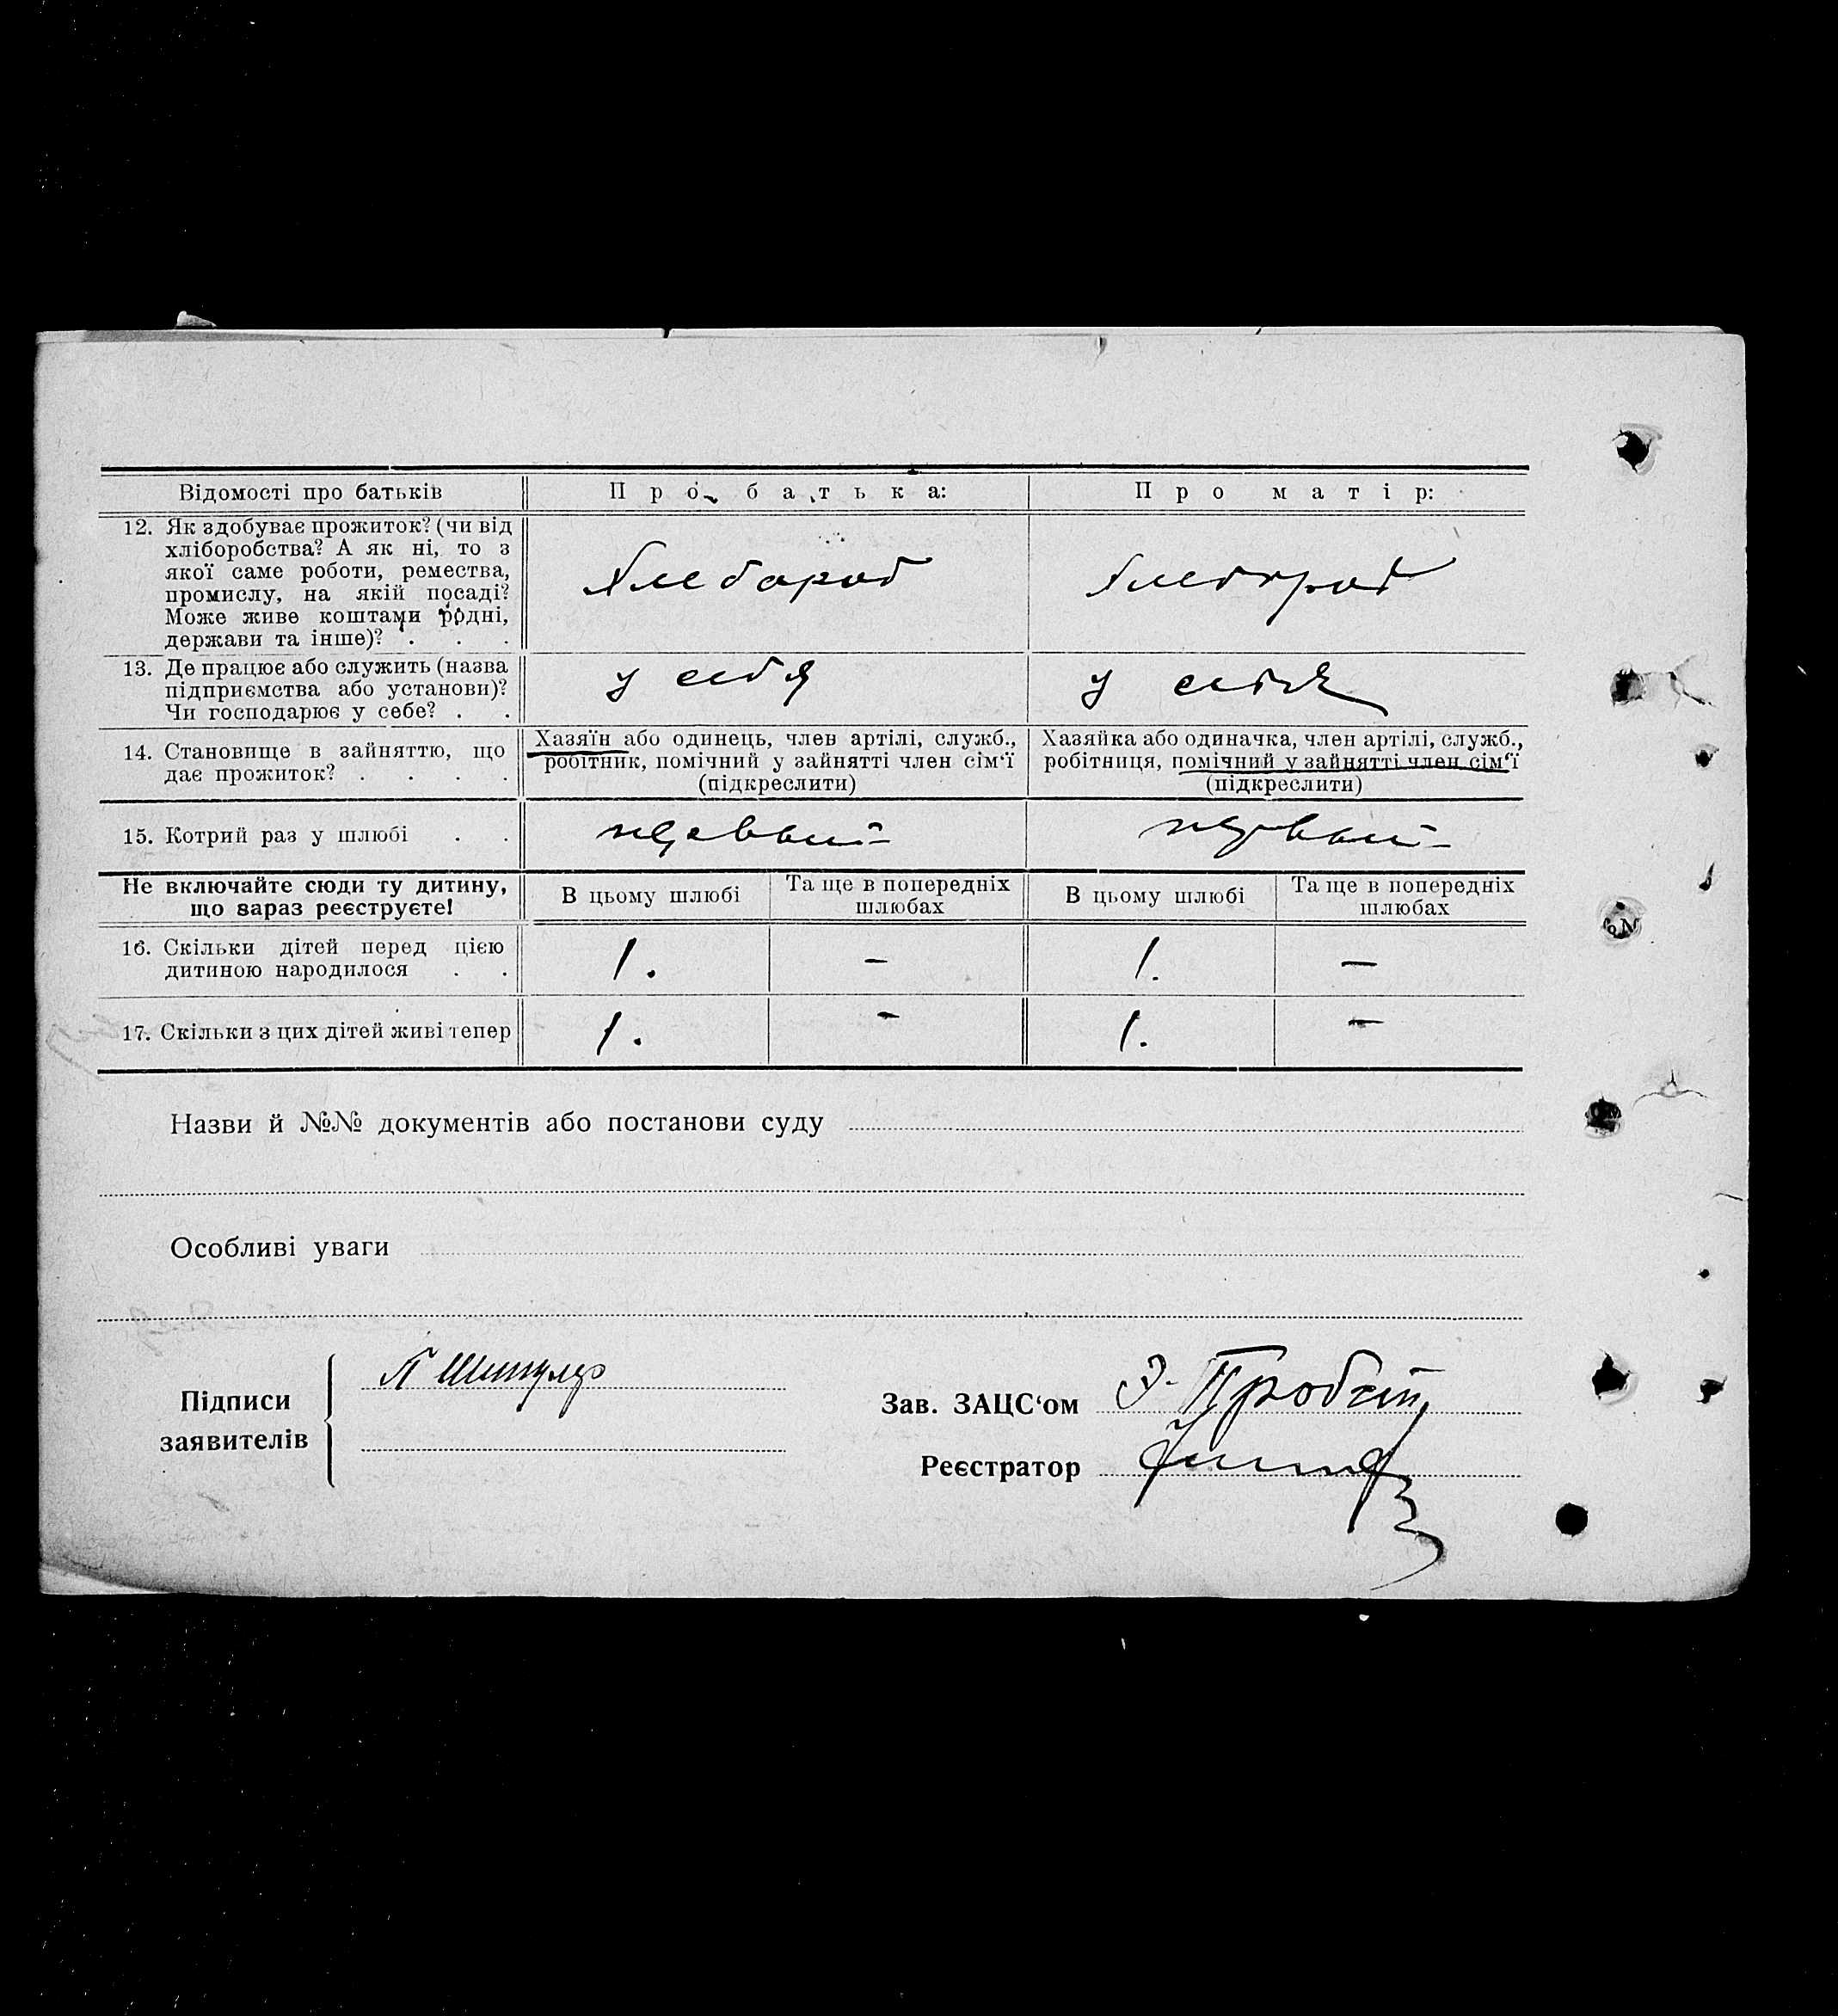 Відомості про батьків Про батька: Про матір:
12. Як здобуває прожиток? (чи від
хліборобства? А як ні, то з
якої саме роботи, ремества,
промислу, на якій посаді?
Може живе коштами рідні,
держави та інше)? . . .
Хлебороб Хлебороб
13. Де працює або служить (назва
підприємства або установи)?
Чи господарює у себе? . .
у себя у себя
14. Становище в зайняттю, що
дає прожиток? . . . .
Хазяїн або одинець, член артілі, служб.,
робітник, помічний у зайнятті член сім‘ї
(підкреслити)
Хазяйка або одиначка, член артілі, служб.,
робітниця, помічний у зайнятті член сім‘ї
(підкреслити)
15. Котрий раз у шлюбі . . первый первый
Не включайте сюди ту дитину,
що зараз реєструєте!
В цьому шлюбі
Та ще в попередніх
шлюбах
В цьому шлюбі
Та ще в попередніх
шлюбах
16. Скільки дітей перед цією
дитиною народилося . .
1. – 1. –
17. Скільки з цих дітей живі тепер 1. – 1. –
Назви й №№ документів або постанови суду
Особливі уваги
Підписи
заявителів
Зав. ЗАЦС‘ом
Реєстратор